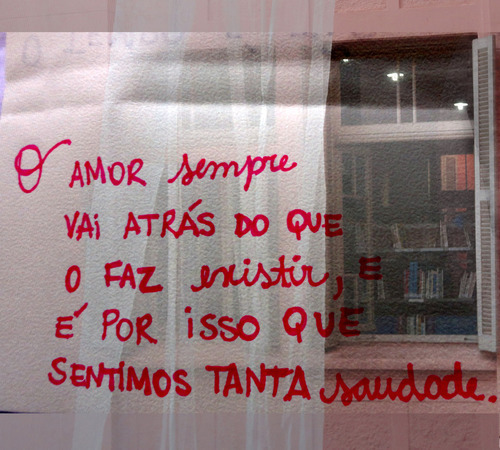 O AMOR sempre
VAi ATRÁS DO QUE
O FAZ existir, E
É POR isso QUE
SENTIMOS TANTA saudade.